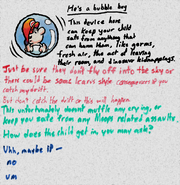 He's a bubble boy
This device here
can keep your child
safe from anything that
can harm them, like germs,
fresh air, the act of leaving
their room, and dinosaur kidnappings.
Just be sure they don't fly off into the sky or
there could be some Icarus style consequences if you
catch my drift.
But don't catch the drift or this will happen
This unfortunately doesn't muffle any crying, or
keep you safe from any Noops related assaults.
How does the child get in you may ask?
Uhh, maybe if—
no
um